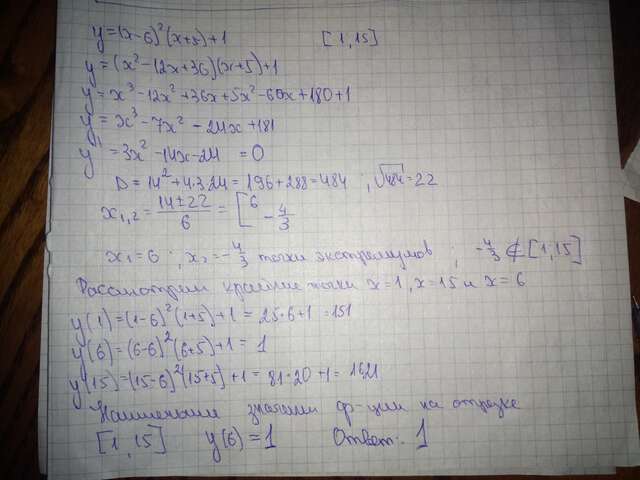 y=(x-6)²(x+5)+1 [1;15]
y=(x²-12x+36)(x+5)+1
y=x³-12x²+36x+5x²-60x+180+1
y=x³-7x²-24x+181
y'=3x²-14x-24=0
D=14²+4·3·24=196+288=484, √484=22
x₁,₂=(14±22)/6=[6 -4/3
x₁=6; x₂=-4/3 точки экстремумов; -4/3∉[1;15]
Рассмотрим крайние точки x=1, x=15 и x=6
y(1)=(1-6)²(1+5)+1=25·6+1=151
y(6)=(6-6)²(6+5)+1=1
y(15)=(15-6)²(15+5)+1=81·20+1=1621
Наименьшее значение ф-ции на отрезке
[1;15] y(6)=1 Ответ: 1